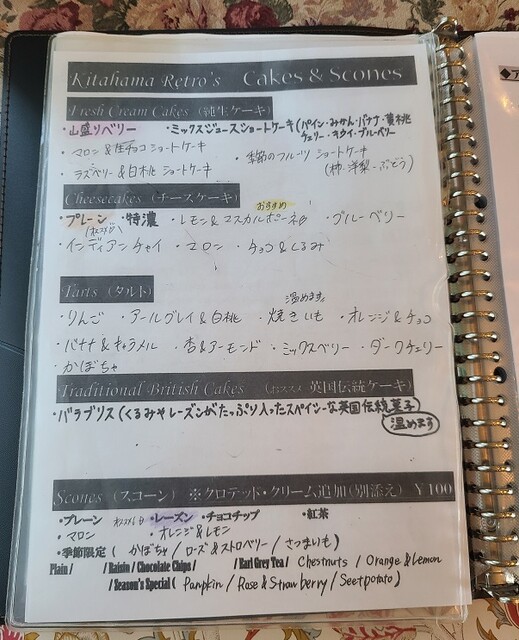 Kitahama Retro's Cakes & Scones
Fresh Cream Cakes (純生ケーキ)
・山盛りベリー ・ミックスジュースショートケーキ(パイン・みかん・バナナ・黄桃
チェリー・キウイ・ブルーベリー
・マロン&生チョコショートケーキ ・季節のフルーツショートケーキ
・ラズベリー&白桃ショートケーキ (柿・洋梨・ぶどう)
Cheesecakes (チーズケーキ) おすすめ
・プレーン ・特濃 ・レモン&マスカルポーネ ・ブルーベリー
・インディアンチャイ ・マロン ・チョコ&くるみ
Tarts (タルト) 温めます
・りんご ・アールグレイ&白桃 ・焼きいも ・オレンジ&チョコ
・バナナ&キャラメル ・杏&アーモンド ・ミックスベリー ・ダークチェリー
・かぼちゃ
Traditional British Cakes (おススメ 英国伝統ケーキ)
・バラブリス(くるみやレーズンがたっぷり入ったスペイシーな英国伝統菓子
温めます
Scones (スコーン) ※クロテッド・クリーム追加(別添え) ¥100
・プレーン ・レーズン ・チョコチップ ・紅茶
・マロン ・オレンジ&レモン
・季節限定 ( かぼちゃ / ローズ&ストロベリー / さつまいも)
Plain / / Raisin / Chocolate Chips / / Earl Grey Tea / Chestnuts / Orange & Lemon
/ Season's Special ( Pampkin / Rose & Strawberry / Seetpotato )